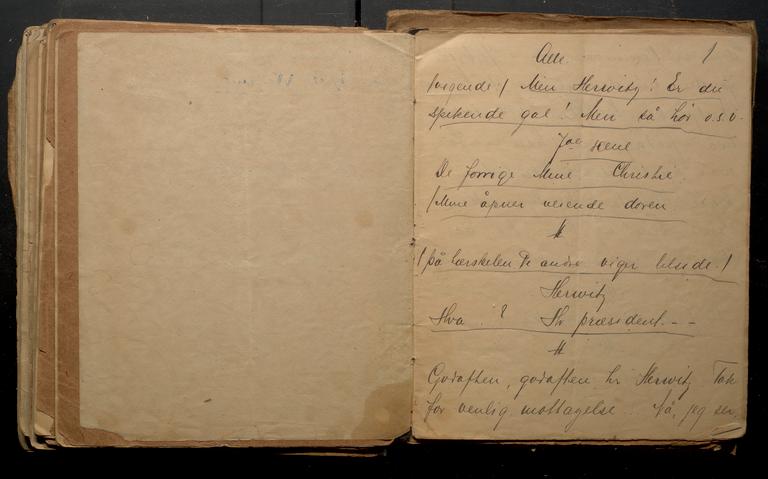 Alle. 1
/vegende:/ Men Herwitz! Er du
spekende gal! Men så hør o.s.v.
7de scene
De forrige Mine Christie
/Mine åpner veiende døren
//
/på tærskelen De andre viger tilside./
Herwitz
Hva..? Hr præsident.--
//
Godaften, godaften hr Herwitz Tak
for venlig mottagelse.. Nå, jeg ser,